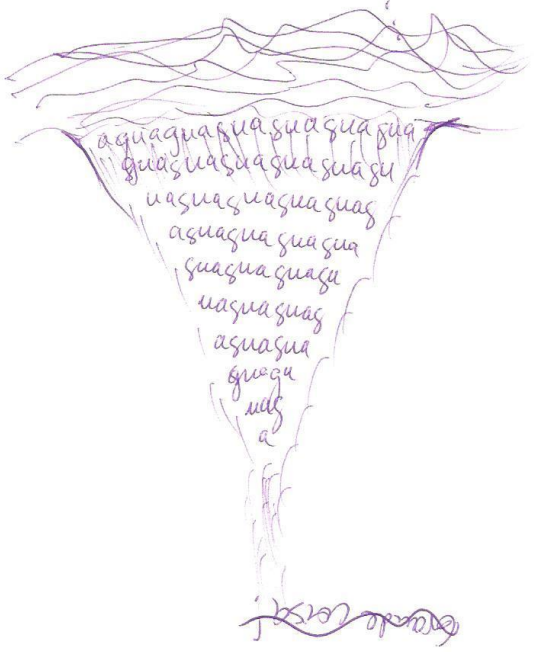 aguaguaguaguaguagua
guaguaguaguaguagu
uaguaguaguaguag
aguaguaguagua
guaguaguagu
uaguaguag
aguagua
guagu
uag
a